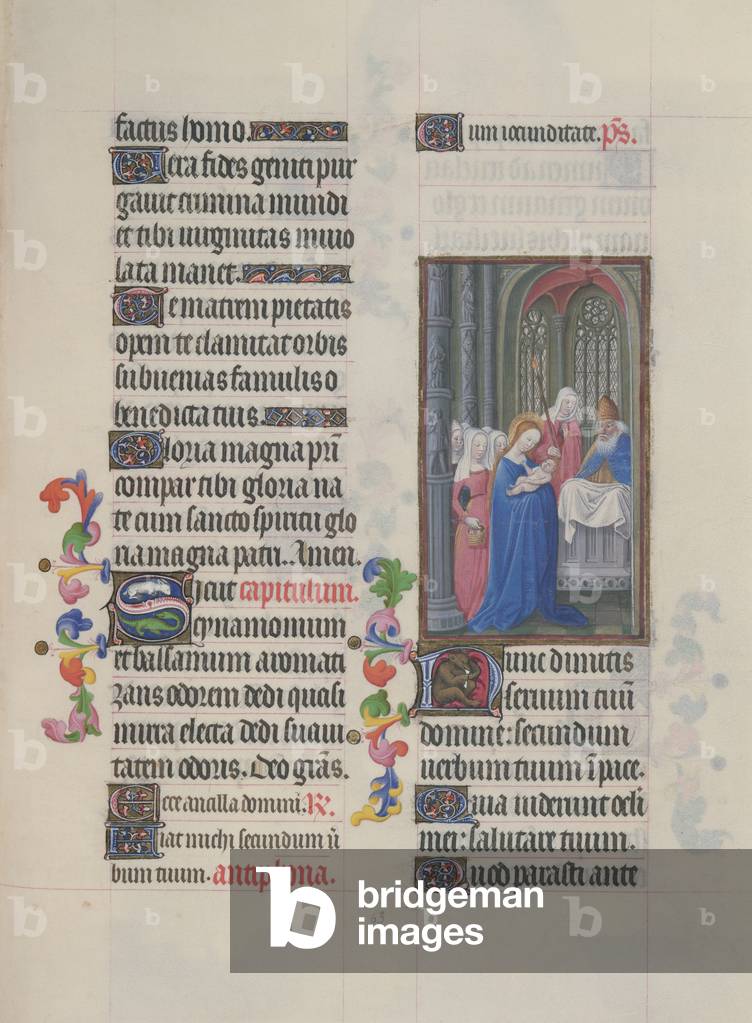 factus homo.
Vera fides geniti pur
gavit crimina mundi
et tibi virginitas invio
lata manet.
Te matrem pietatis
opem te clamitat orbis
subvenias famulis o
benedicta tuis.
Gloria magna pr̄i
compar tibi gloria na
te cum sancto spiritu glo
ria magna patri. Amen.
Sicut capitulum.
Cynamomum
et balsamum aromati
zans odorem dedi quasi
mirra electa dedi suavi
tatem odoris. Deo grās.
Ecce ancilla domini. ℟.
Fiat michi secundum ū
bum tuum. antiphona.
Cum iocunditate. p̄s.
Nunc dimitis
servum tuū
domine: secundum
verbum tuum ī pace.
Quia viderunt oculi
mei: salutare tuum.
Quod parasti ante
63
b bridgeman
images